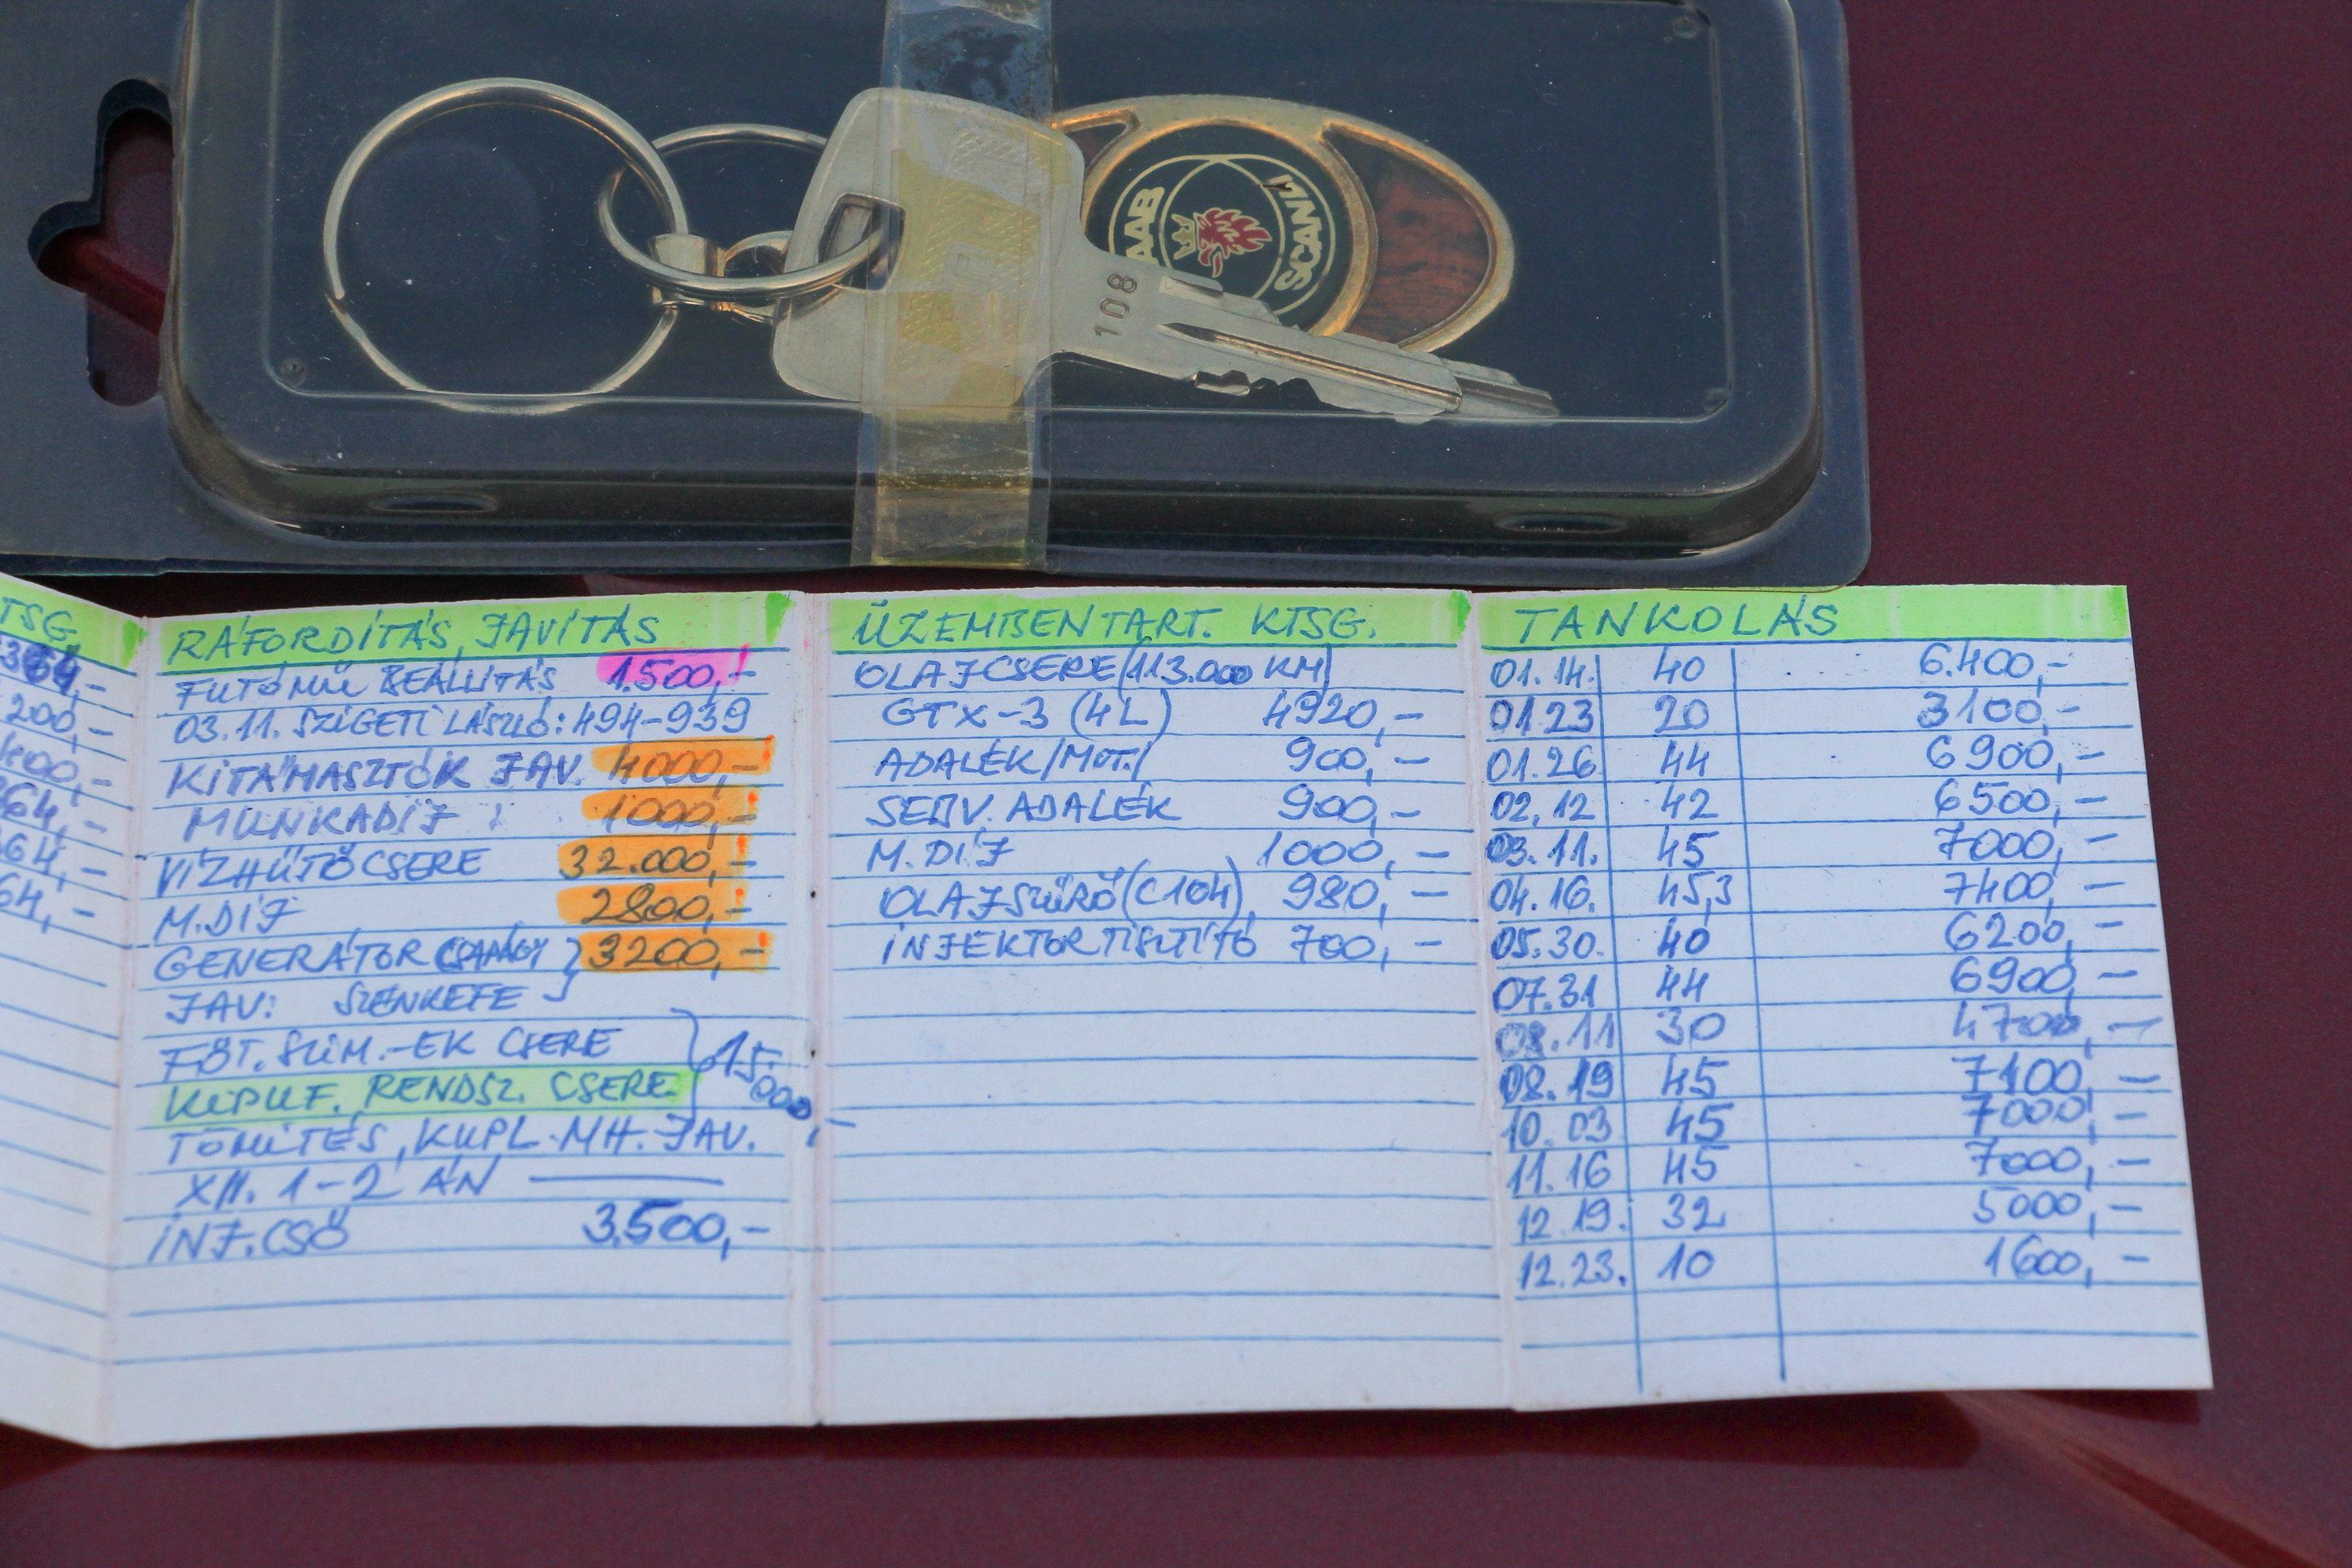 SAAB SCANIA
108
TSG.
364,-
200,-
400,-
364,-
364,-
64,-
RÁFORDÍTÁS, JAVÍTÁS
FUTÓMŰ BEÁLLITÁS 1.500,-
03.11. SZIGETI LÁSZLÓ: 494-939
KITÁMASZTÓK JAV. 4000,-
MUNKADÍJ: 1000,-
VÍZHŰTŐCSERE 32.000,-
M.DÍJ 2800,-
GENERÁTOR CSAPÁGY } 3200,-
JAV: SZÉNKEFE
FŐT. SZIM.-EK CSERE } 15.000,-
KIPUF. RENDSZ. CSERE.
TÖMITÉS, KUPL. MH. JAV.
XII. 1-2 ÁN
INJ.CSŐ 3.500,-
ÜZEMBENTART. KTSG.
OLAJCSERE (113.000 KM)
GTX-3 (4L) 4920,-
ADALÉK/MOT./ 900,-
SERV. ADALÉK 900,-
M.DÍJ 1000,-
OLAJSZŰRŐ (C104) 980,-
INJEKTORTISZTÍTÓ 700,-
TANKOLÁS
01.14. 40 6.400,-
01.23 20 3100,-
01.26 44 6900,-
02.12 42 6500,-
03.11. 45 7000,-
04.16. 45,3 7400,-
05.30. 40 6200,-
07.31 44 6900,-
08.11 30 4700,-
08.19 45 7100,-
10.03 45 7000,-
11.16 45 7000,-
12.19. 32 5000,-
12.23. 10 1600,-